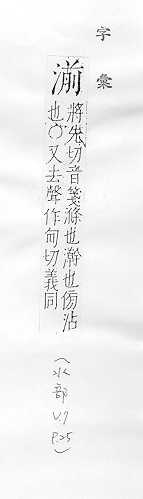 字彙
湔
將先切音箋滌也澣也傍沾
也○又去聲作甸切義同
(水部
V.7
P.25)